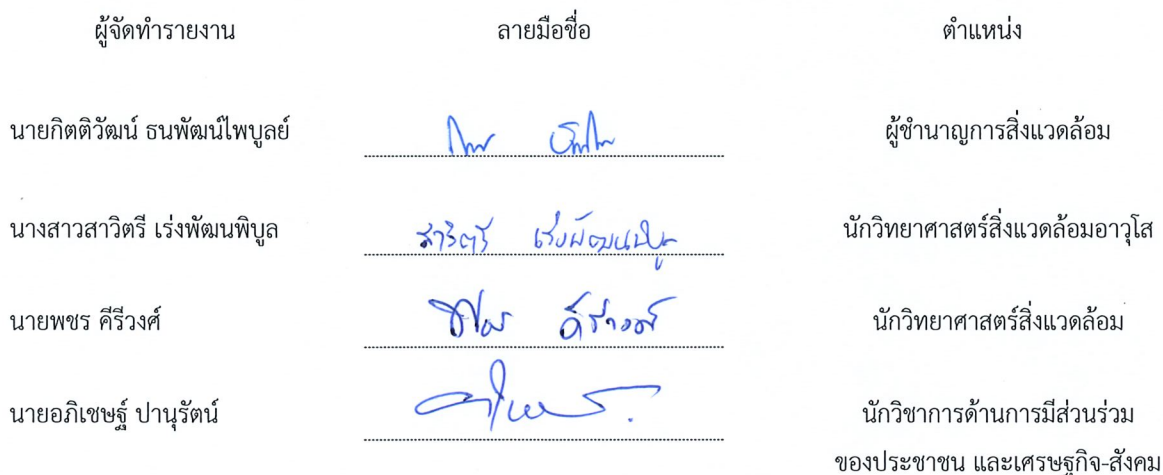 ผู้จัดทำรายงาน ลายมือชื่อ ตำแหน่ง
นายกิตติวัฒน์ ธนพัฒน์ไพบูลย์ ผู้ชำนาญการสิ่งแวดล้อม
นางสาวสาวิตรี เร่งพัฒนพิบูล สาวิตรี เร่งพัฒนพิบูล นักวิทยาศาสตร์สิ่งแวดล้อมอาวุโส
นายพชร คีรีวงศ์ คีรีวงศ์ นักวิทยาศาสตร์สิ่งแวดล้อม
นายอภิเชษฐ์ ปานุรัตน์ นักวิชาการด้านการมีส่วนร่วม
ของประชาชน และเศรษฐกิจ-สังคม